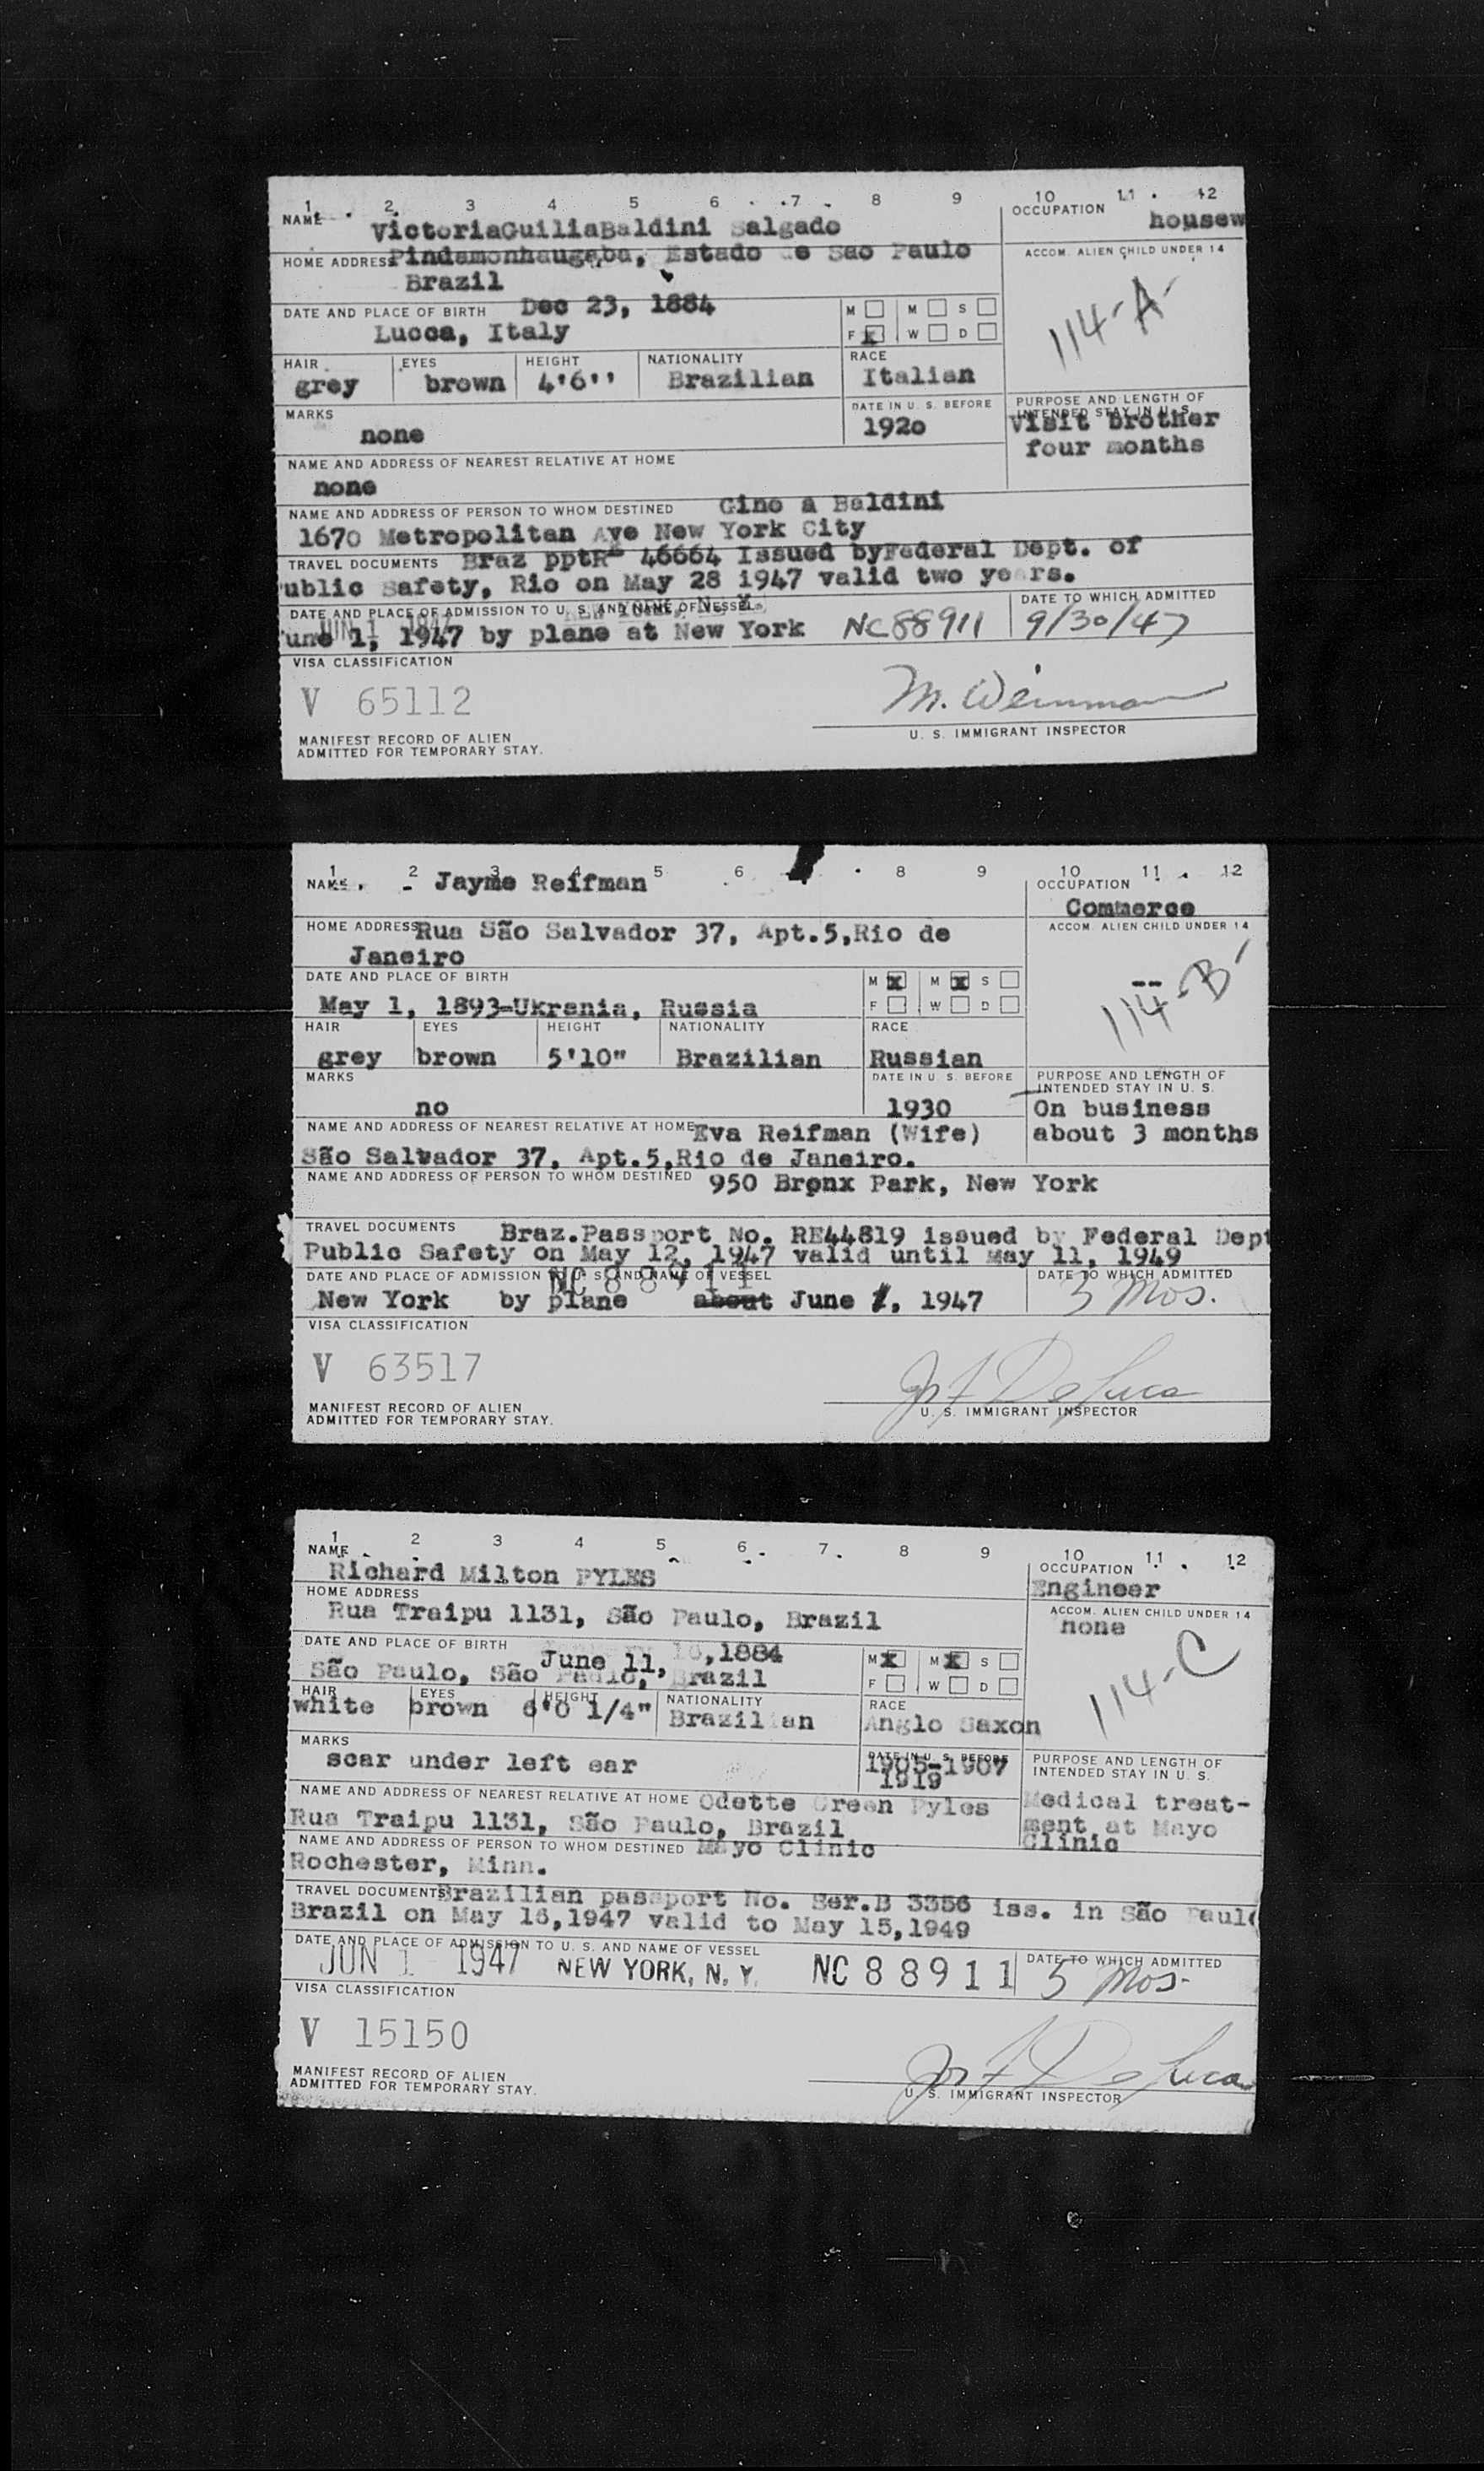 1 2 3 4 5 6 7 8 9 10 11 12
NAME VictoriaGuiliaBaldini Salgado
OCCUPATION housew
HOME ADDRESS Pindamonhaugaba, Estado de Sao Paulo
Brazil
ACCOM. ALIEN CHILD UNDER 14
114-A-
DATE AND PLACE OF BIRTH Dec 23, 1884
Lucca, Italy
M M S
F X W D
HAIR EYES HEIGHT NATIONALITY RACE
grey brown 4'6'' Brazilian Italian
MARKS DATE IN U. S. BEFORE PURPOSE AND LENGTH OF INTENDED STAY IN U. S.
none 1920 Visit brother
four months
NAME AND ADDRESS OF NEAREST RELATIVE AT HOME
none
NAME AND ADDRESS OF PERSON TO WHOM DESTINED Gino A Baldini
1670 Metropolitan Ave New York City
TRAVEL DOCUMENTS Braz pptR 46664 Issued byFederal Dept. of
ublic Safety, Rio on May 28 1947 valid two years.
DATE AND PLACE OF ADMISSION TO U. S. AND NAME OF VESSEL DATE TO WHICH ADMITTED
JUN 1 1947 NEW YORK, N. Y.
une 1, 1947 by plane at New York NC88911 9/30/47
VISA CLASSIFICATION
V 65112
M. Weinman
U. S. IMMIGRANT INSPECTOR
MANIFEST RECORD OF ALIEN
ADMITTED FOR TEMPORARY STAY.
1 2 3 4 5 6 8 9 10 11 12
NAME Jayme Reifman
OCCUPATION
Commerce
HOME ADDRESS Rua São Salvador 37, Apt.5,Rio de
Janeiro
ACCOM. ALIEN CHILD UNDER 14
--
114-B-
DATE AND PLACE OF BIRTH
May 1, 1893-Ukrania, Russia
M X M X S
F W D
HAIR EYES HEIGHT NATIONALITY RACE
grey brown 5'10" Brazilian Russian
MARKS DATE IN U. S. BEFORE PURPOSE AND LENGTH OF
INTENDED STAY IN U. S.
no 1930 On business
about 3 months
NAME AND ADDRESS OF NEAREST RELATIVE AT HOME Eva Reifman (Wife)
São Salvador 37, Apt.5,Rio de Janeiro.
NAME AND ADDRESS OF PERSON TO WHOM DESTINED 950 Bronx Park, New York
TRAVEL DOCUMENTS Braz.Passport No. RE44819 issued by Federal Dept
Public Safety on May 12, 1947 valid until May 11, 1949
DATE AND PLACE OF ADMISSION TO U. S. AND NAME OF VESSEL DATE TO WHICH ADMITTED
NC 88911
New York by plane about June 1, 1947 3 Mos.
VISA CLASSIFICATION
V 63517
Jos F DeLuca
U. S. IMMIGRANT INSPECTOR
MANIFEST RECORD OF ALIEN
ADMITTED FOR TEMPORARY STAY.
1 2 3 4 5 6 7 8 9 10 11 12
NAME
Richard Milton PYLES
OCCUPATION
Engineer
HOME ADDRESS
Rua Traipu 1131, São Paulo, Brazil
ACCOM. ALIEN CHILD UNDER 14
none
114-C
DATE AND PLACE OF BIRTH June 11,,1884
São Paulo, São Paulo, Brazil
M X M X S
F W D
HAIR EYES HEIGHT NATIONALITY RACE
white brown 6'0 1/4" Brazilian Anglo Saxon
MARKS DATE IN U. S. BEFORE PURPOSE AND LENGTH OF
INTENDED STAY IN U. S.
scar under left ear 1905-1907
1919
NAME AND ADDRESS OF NEAREST RELATIVE AT HOME Odette Green Pyles
Rua Traipu 1131, São Paulo, Brazil
Medical treat-
ment at Mayo
Clinic
NAME AND ADDRESS OF PERSON TO WHOM DESTINED Mayo Clinic
Rochester, Minn.
TRAVEL DOCUMENTS Brazilian passport No. Ser.B 3356 iss. in São Paulo
Brazil on May 16,1947 valid to May 15,1949
DATE AND PLACE OF ADMISSION TO U. S. AND NAME OF VESSEL DATE TO WHICH ADMITTED
JUN 1 1947 NEW YORK, N. Y. NC 88911 5 Mos-
VISA CLASSIFICATION
V 15150
Jos F DeLuca
U. S. IMMIGRANT INSPECTOR
MANIFEST RECORD OF ALIEN
ADMITTED FOR TEMPORARY STAY.